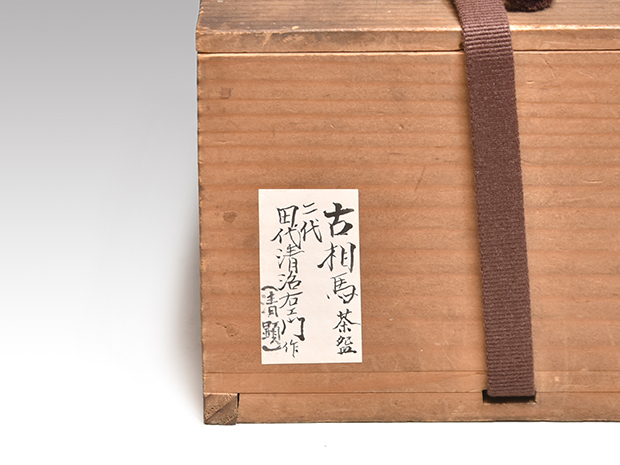 古相馬 茶盌
二代
田代清治右ェ門作
(清顕)